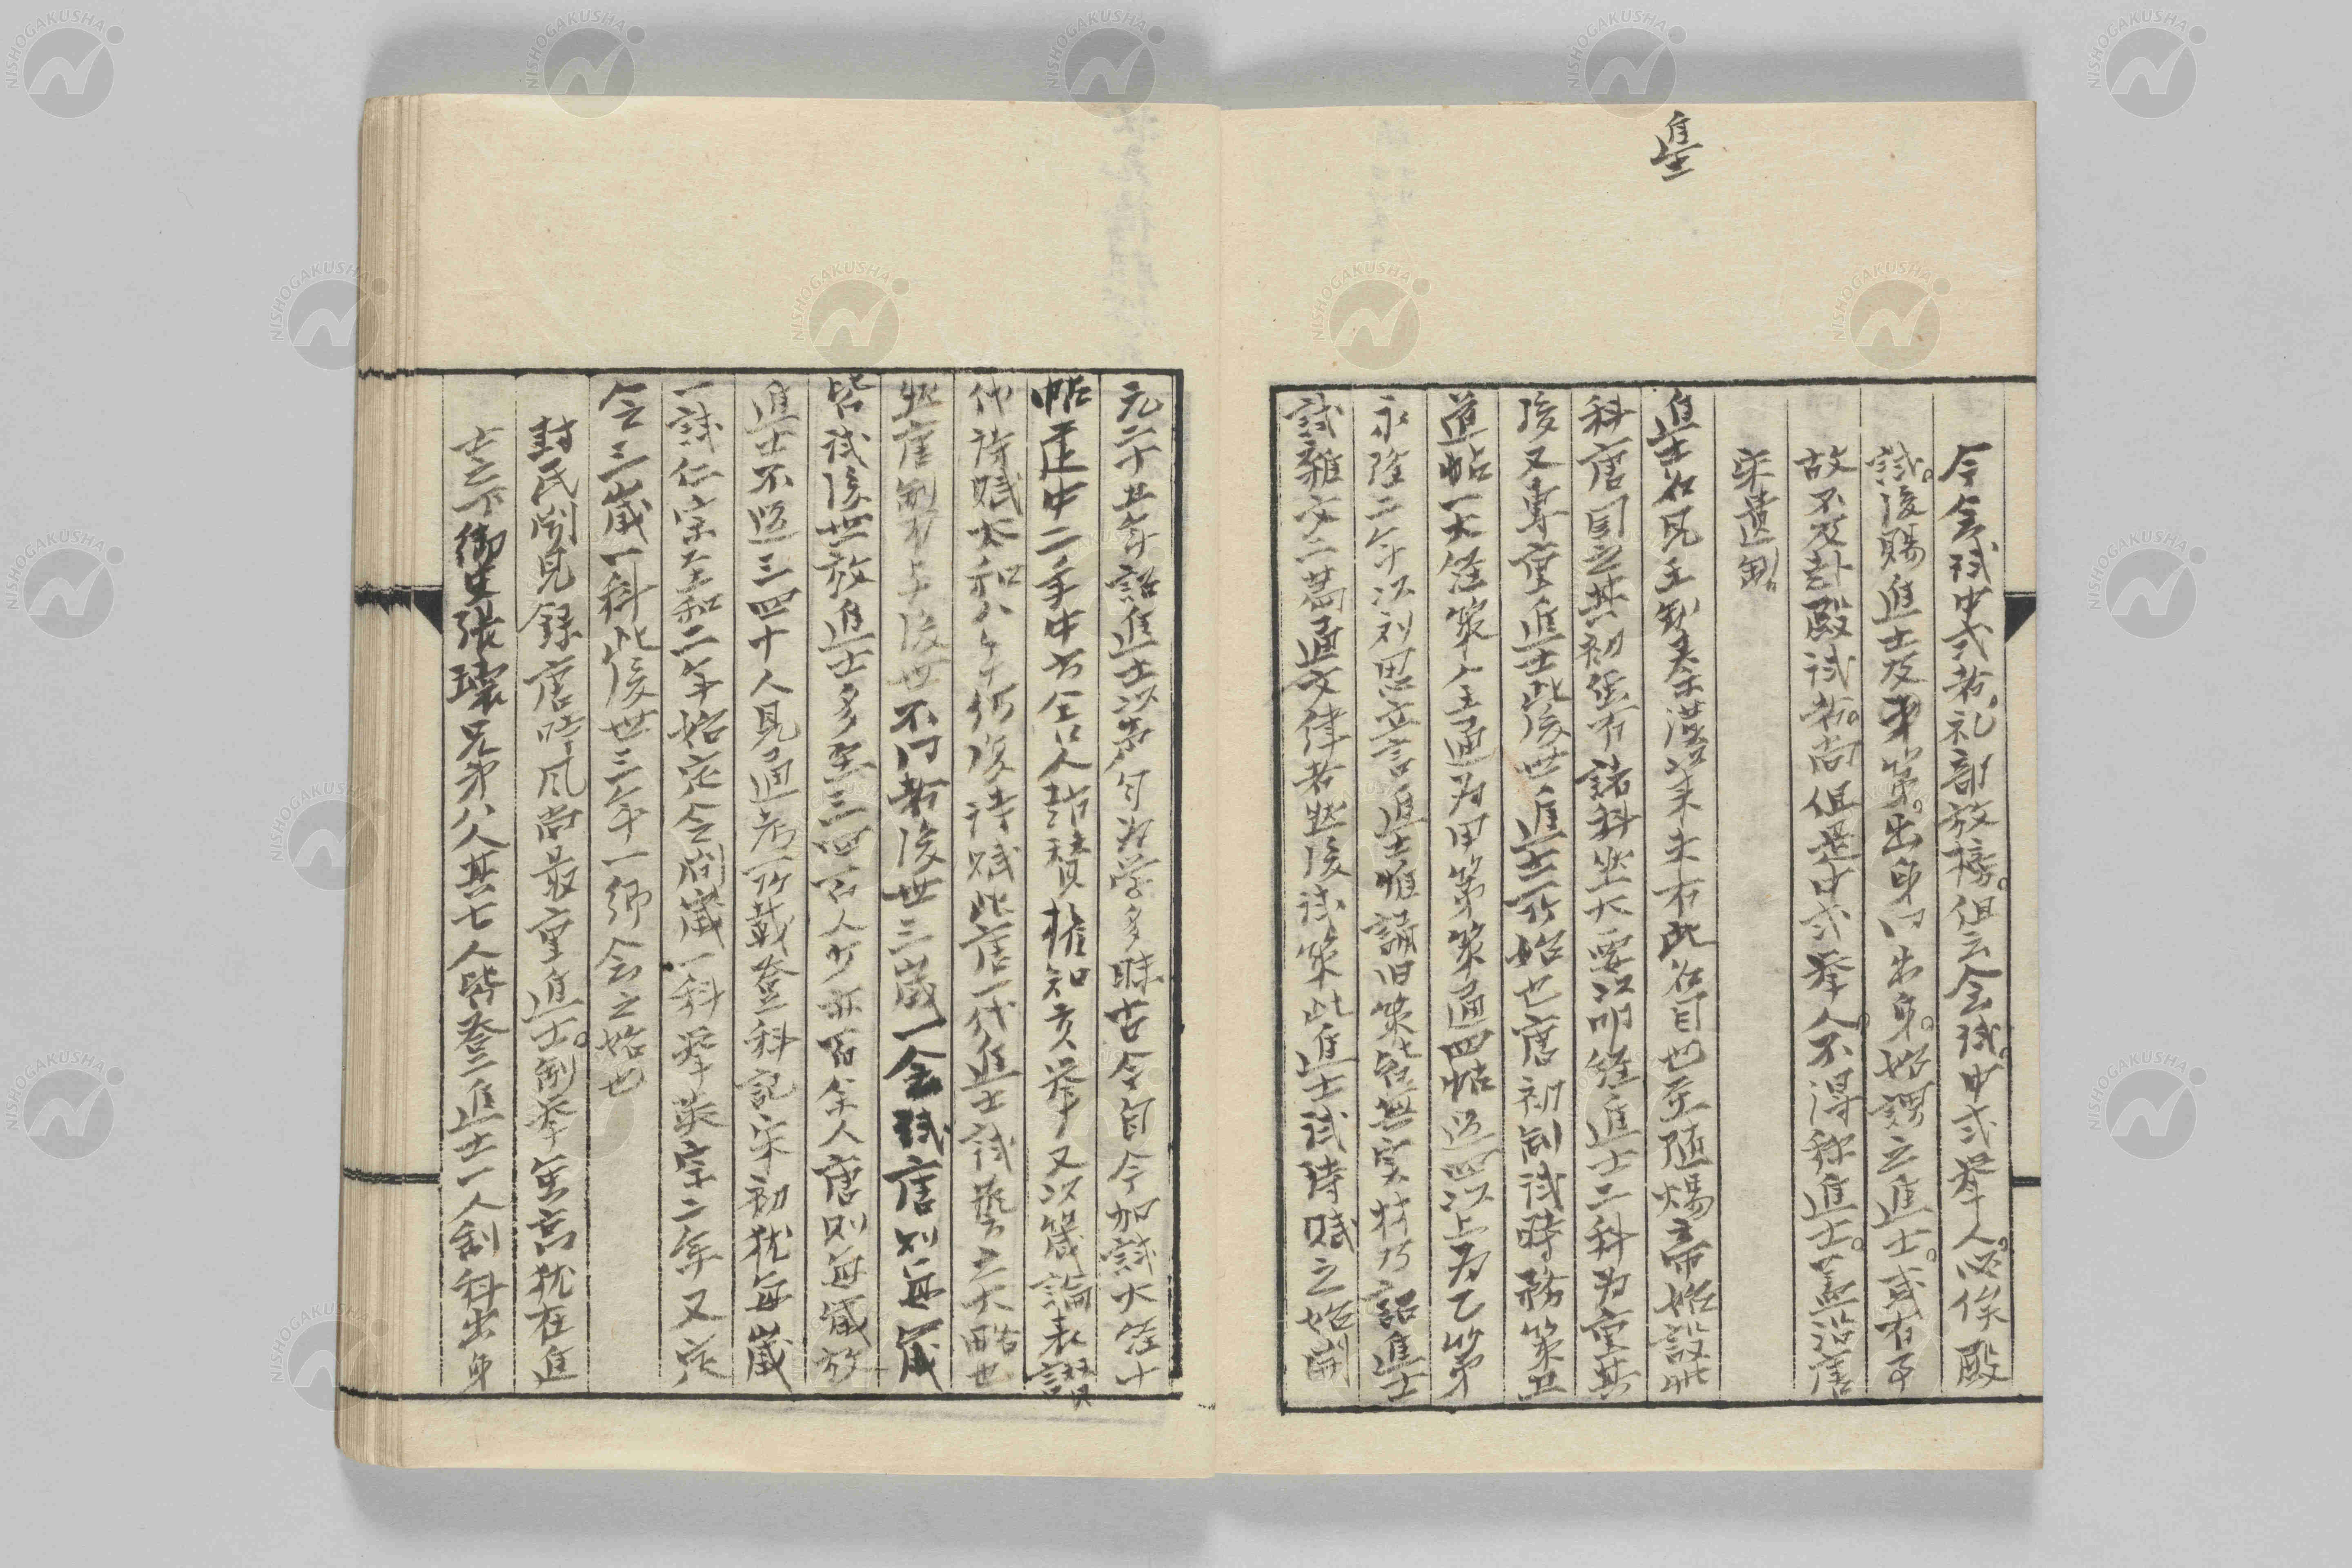 進士
今会試中式者礼部放榜但云会試中式挙人必俟殿
試後賜進士及第出身同出身始謂之進士或有事
故不及赴殿試者尚但是中式挙人不得称進士蓋沿唐
宋遺制
進士名見王制秦漢以来未有此名目也至隋煬帝始設此
科唐因之其初雖有諸科然大要以明経進士二科為重其
後又専重進士此後世進士所始也唐初制試時務策五
道帖一大経策全通為甲第策通四帖過四以上為乙第
永隆二年以劉思立言進士惟誦旧策皆無実材乃詔進士
試雑文二篇通文律者然後試策此進士試詩賦之始開
元二十五年詔進士以声句為学多昧古今自今加試大経十
帖建中二年中書舎人趙賛権知貢挙又以箴論表賛
代詩賦太和八年仍復詩賦此唐一代進士試藝之大略也
然唐制有与後世不同者後世三歳一会試唐則毎歳
皆試後世放進士多至三四百人少亦百余人唐則毎歳放
進士不過三四十人見通考所載登科記宋初猶毎歳
一試仁宗至和二年始定令間歳一科挙英宗二年又定
令三歳一科此後世三年一郷会之始也
封氏聞見録唐時風尚最重進士制挙無高猶在進
士之下御史張瓌兄弟八人其七人皆登進士一人制科出身